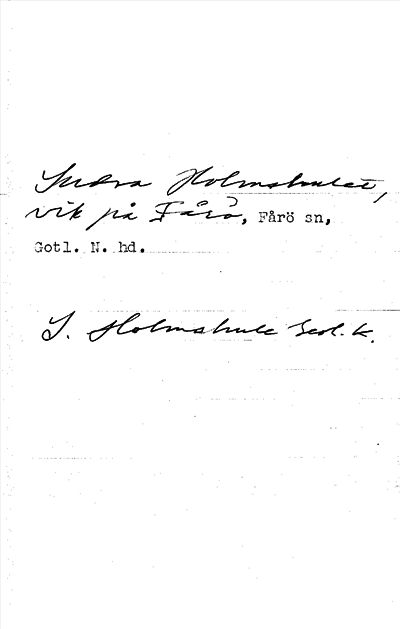 Södra Holmshulet,
vik på Fårö, Fårö sn,
Gotl. N. hd.
S. Holmshule Geol. k.